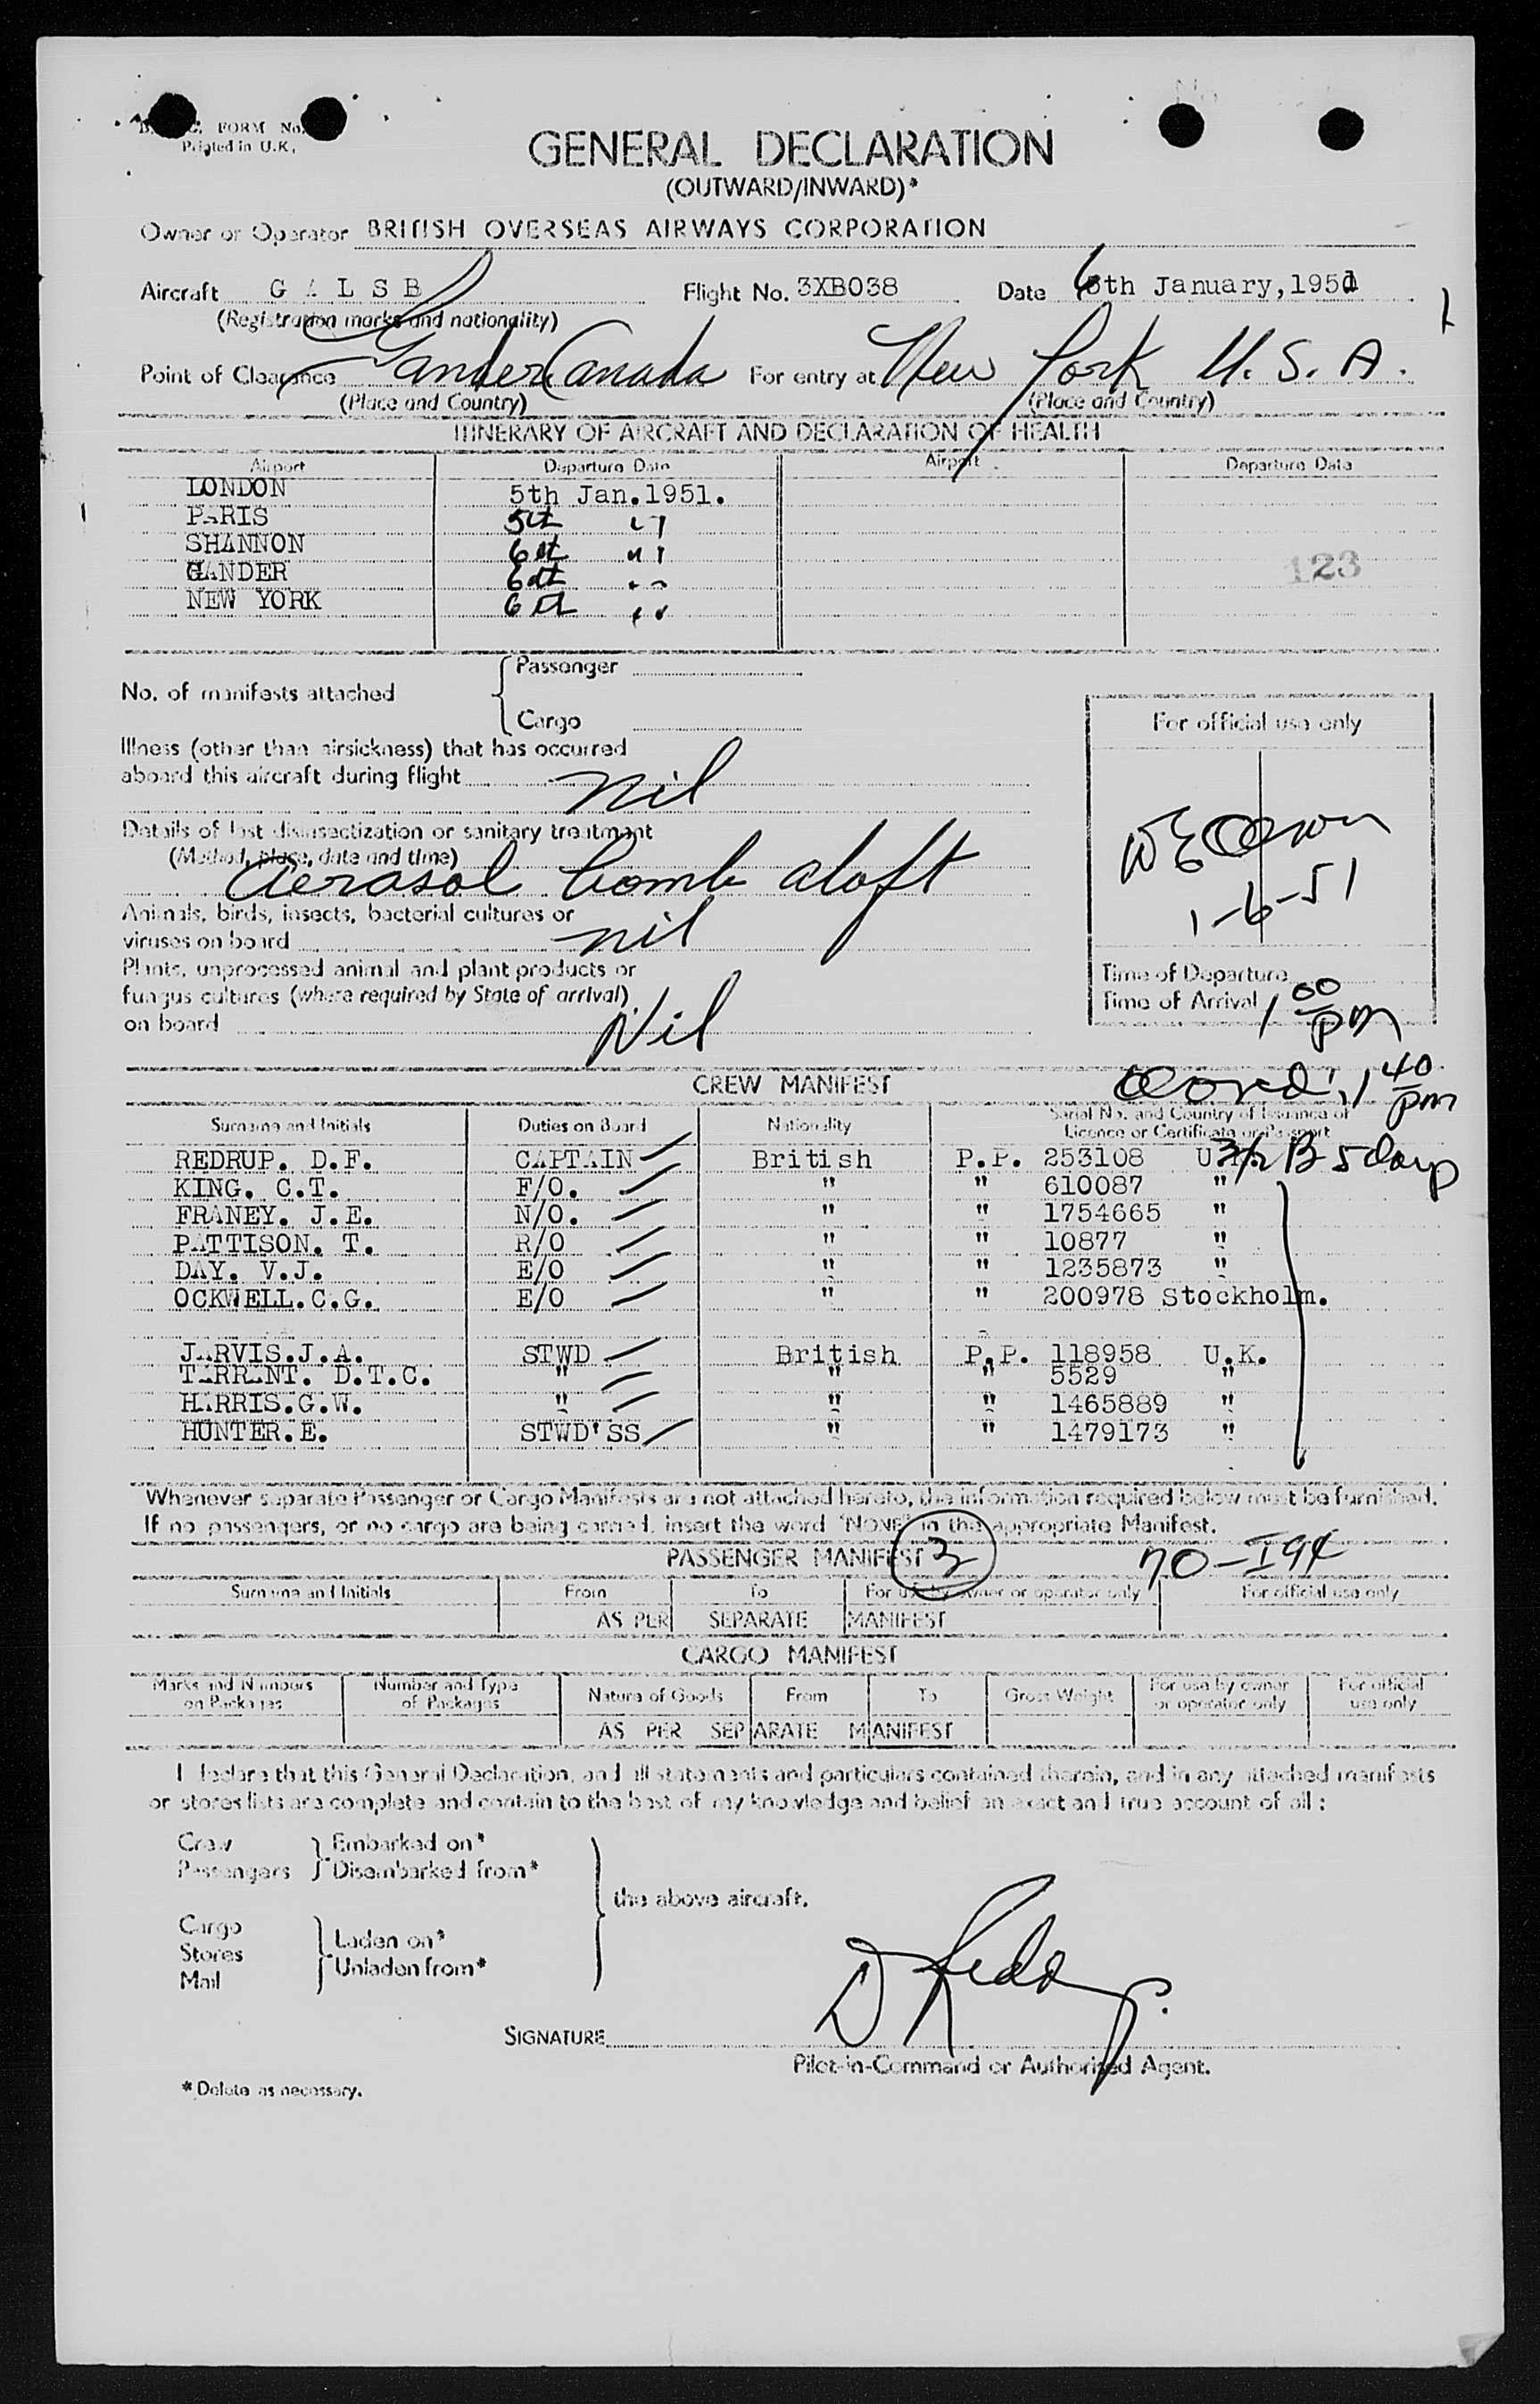 FORM No.
Printed in U.K.
GENERAL DECLARATION
(OUTWARD/INWARD)*
Owner or Operator BRITISH OVERSEAS AIRWAYS CORPORATION
Aircraft G A L S B Flight No. 3XB038 Date 6th January, 1951
(Registration marks and nationality)
Point of Clearance Gander Canada For entry at New York U.S.A.
(Place and Country) (Place and Country)
ITINERARY OF AIRCRAFT AND DECLARATION OF HEALTH
Airport Departure Date Airport Departure Date
LONDON 5th Jan.1951.
PARIS 5th "
SHANNON 6th "
GANDER 6th " 123
NEW YORK 6th "
No. of manifests attached { Passenger
Cargo
For official use only
Illness (other than airsickness) that has occurred
aboard this aircraft during flight nil
Details of last disinsectization or sanitary treatment
(Method, place, date and time)
Aerosol bomb aloft
1-6-51
Animals, birds, insects, bacterial cultures or
viruses on board nil
Plants, unprocessed animal and plant products or
fungus cultures (where required by State of arrival)
on board Nil
Time of Departure
Time of Arrival 1 00 pm
CREW MANIFEST 1 40 pm
Surname and Initials Duties on Board Nationality Serial No. and Country of Issuance of
Licence or Certificate or Passport
REDRUP. D.F. CAPTAIN British P.P. 253108 U.K. B 5 days
KING. C.T. F/O. " " 610087 "
FRANEY. J.E. N/O. " " 1754665 "
PATTISON. T. R/O " " 10877 "
DAY. V.J. E/O " " 1235873 "
OCKWELL.C.G. E/O " " 200978 Stockholm.
JARVIS.J.A. STWD British P.P. 118958 U.K.
TARRANT. D.T.C. " " " 5529 "
HARRIS.G.W. " " " 1465889 "
HUNTER.E. STWD'SS " " 1479173 "
Whenever separate Passenger or Cargo Manifests are not attached hereto, the information required below must be furnished.
If no passengers, or no cargo are being carried, insert the word "NONE" in the appropriate Manifest.
PASSENGER MANIFEST 3 70-I94
Surname and Initials From To For use by owner or operator only For official use only
AS PER SEPARATE MANIFEST
CARGO MANIFEST
Marks and Numbers on Packages Number and Type of Packages Nature of Goods From To Gross Weight For use by owner or operator only For official use only
AS PER SEPARATE MANIFEST
I declare that this General Declaration, and all statements and particulars contained therein, and in any attached manifests
or stores lists are complete and contain to the best of my knowledge and belief an exact and true account of all :
Crew } Embarked on*
Passengers } Disembarked from*
the above aircraft.
Cargo
Stores } Laden on*
Mail } Unladen from*
D Redrup.
SIGNATURE
Pilot-in-Command or Authorised Agent.
* Delete as necessary.